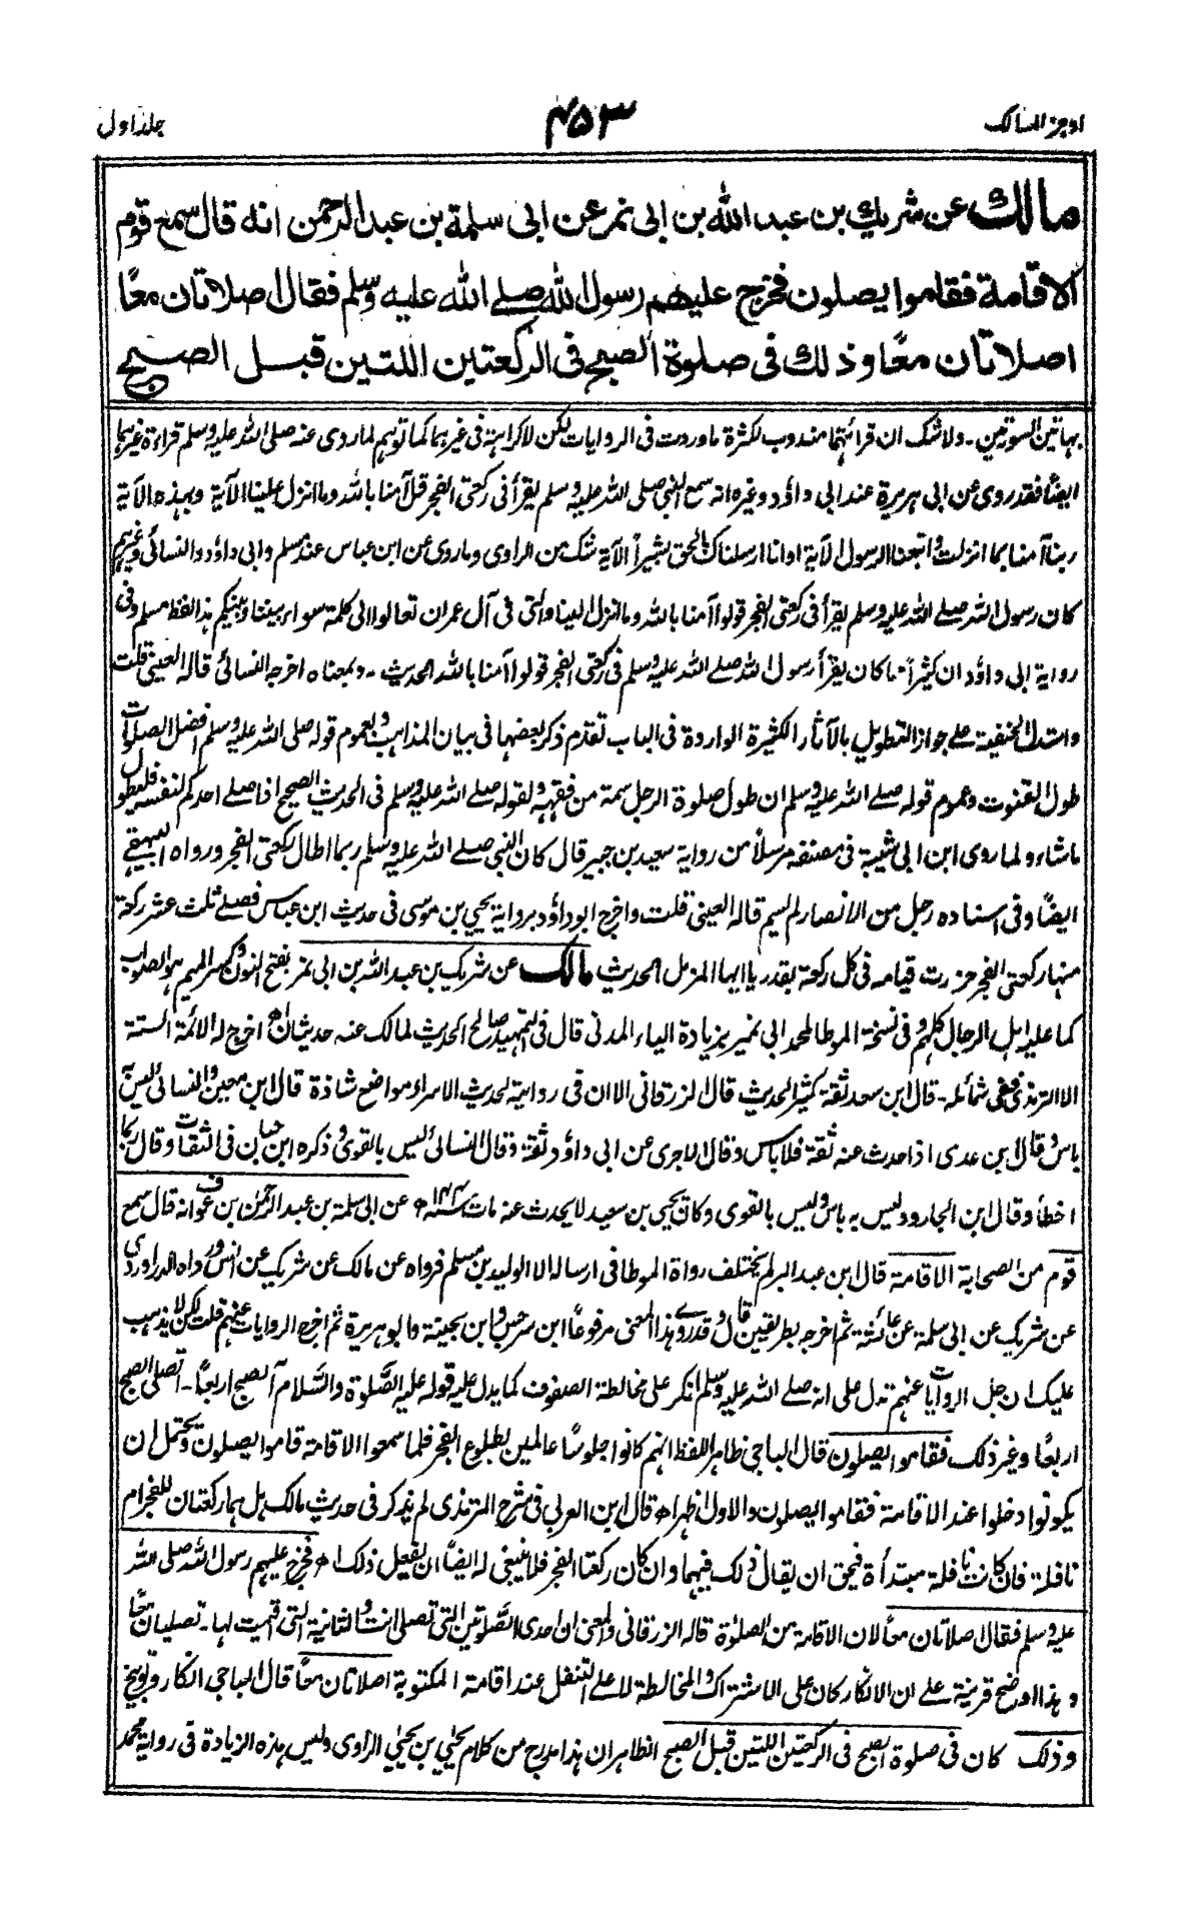 اوجز المسالك
۴۵۳
جلد اول
مالك عن شريك بن عبد الله بن ابى نمر عن ابى سلمة بن عبد الرحمن انه قال سمع قوم
الاقامة فقاموا يصلون فخرج عليهم رسول الله صلے الله عليه وسلم فقال اصلاتان معًا
اصلاتان معًا وذلك فى صلوة الصبح فى الركعتين اللتين قبل الصبح
بهاتين السورتين۔ ولا شك ان قرائتهما مندوب لكثرة ما وردت فى الروايات لكن لا كراهة فى غيرهما كما توهم لما روى عنه صلى الله عليه وسلم قراءة غيرها
ايضًا فقد روى عن ابى هريرة عند ابى داؤد وغيره انه سمع النبى صلى الله عليه وسلم يقرأ فى ركعتى الفجر قل آمنا بالله وما انزل علينا الآية وبهذه الآية
ربنا آمنا بما انزلت واتبعنا الرسول الآية او انا ارسلناك بالحق بشيراً الآية شك من الراوى وما روى عن ابن عباس عند مسلم وابى داؤد والنسائى وغيرهم
كان رسول الله صلے الله عليه وسلم يقرأ فى ركعتى الفجر قولوا آمنا بالله وما انزل الينا والتى فى آل عمران تعالوا الى كلمة سواء بيننا وبينكم هذا لفظ مسلم وفى
رواية ابى داؤد ان كثيراً ما كان يقرأ رسول الله صلے الله عليه وسلم فى ركعتى الفجر قولوا آمنا بالله الحديث۔ وبمعناه اخرجه النسائى قاله العينى قلت
واستدل الحنفية على جواز التطويل بالآثار الكثيرة الواردة فى الباب تقدم ذكر بعضها فى بيان المذاهب وبعموم قوله صلى الله عليه وسلم افضل الصلوات
طول القنوت وعموم قوله صلے الله عليه وسلم ان طول صلوة الرجل سمة من فقهه ولقوله صلے الله عليه وسلم فى الحديث الصحيح اذا صلے احدكم لنفسه فليطول
ما شاء ولما روى ابن ابى شيبة فى مصنفه مرسلاً من رواية سعيد بن جبير قال كان النبى صلے الله عليه وسلم ربما اطال ركعتى الفجر ورواه البيهقى
ايضًا وفى اسناده رجل من الانصار لم يسم قاله العينى قلت واخرج ابو داؤد برواية يحيى بن موسى فى حديث ابن عباس فصلے ثلث عشر ركعة
منها ركعتى الفجر حزرت قيامه فى كل ركعة بقدر يا ايها المزمل الحديث مالك عن شريك بن عبد الله بن ابى نمر بفتح النون وكسر الميم هو الصواب
كما عليه اهل الرجال كلهم وفى نسخة الموطا لمحمد ابى نمير بزيادة الياء المدنى قال فى التمهيد صالح الحديث لمالك عنه حديثان اھ اخرج له الائمة الستة
الا الترمذى ففى شمائله۔ قال ابن سعد ثقة كثير الحديث قال الزرقانى الا ان فى روايته لحديث الاسراء مواضع شاذة قال ابن معين والنسائى ليس به
باس وقال ابن عدى اذا حدث عنه ثقة فلا باس وقال الآجرى عن ابى داؤد ثقة وقال النسائى ليس بالقوى وذكره ابن حبان فى الثقات وقال ربما
اخطأ وقال ابن الجارود ليس به باس وليس بالقوى وكان يحيى بن سعيد لا يحدث عنه مات سنة ۱۴۴ھ عن ابى سلمة بن عبد الرحمٰن بن عوف انه قال سمع
قوم من الصحابة الاقامة قال ابن عبد البر لم يختلف رواة الموطا فى ارساله الا الوليد بن مسلم فرواه عن مالك عن شريك عن انس ورواه الدراوردى
عن شريك عن ابى سلمة عن عائشة ثم اخرجه بطريقين قال وقد روے هذا المعنى مرفوعًا ابن سرجس وابن بحينة وابو هريرة ثم اخرج الروايات عنهم قلت لكن لا يذهب
عليك ان جل الروايات عنهم تدل على انه صلے الله عليه وسلم انكر على مخالطة الصفوف كما يدل عليه قوله عليه الصَّلوة والسَّلام آلصبح اربعًا۔ اتصلى الصبح
اربعًا وغير ذلك فقاموا يصلون قال الباجى ظاهر اللفظ انهم كانوا جلوسًا عالمين بطلوع الفجر فلما سمعوا الاقامة قاموا يصلون ويحتمل ان
يكونوا دخلوا عند الاقامة فقاموا يصلون والاول اظهر اھ قال ابن العربى فى شرح الترمذى لم يذكر فى حديث مالك هل هما ركعتان للفجر ام
نافلة فان كانت نافلة مبتدأة فيحق ان يقال ذلك فيهما وان كان ركعتا الفجر فلا ينبغى له ايضًا ان يفعل ذلك اھ فخرج عليهم رسول الله صلى الله
عليه وسلم فقال اصلاتان معًا لان الاقامة من الصلوٰة قاله الزرقانى والمعنى ان احدى الصَّلوتين التى تصلى انت والثانية التى اقيمت لها۔ تصليان معًا
وهذا اوضح قرينة على ان الانكار كان على الاشتراك والمخالطة لا على التنفل عند اقامة المكتوبة اصلاتان معًا قال الباجى انكار وتوبيخ
وذلك كان فى صلوة الصبح فى الركعتين اللتين قبل الصبح الظاهر ان هذا مدرج من كلام يحيىٰ بن يحيىٰ الراوى وليس هذه الزيادة فى رواية محمد